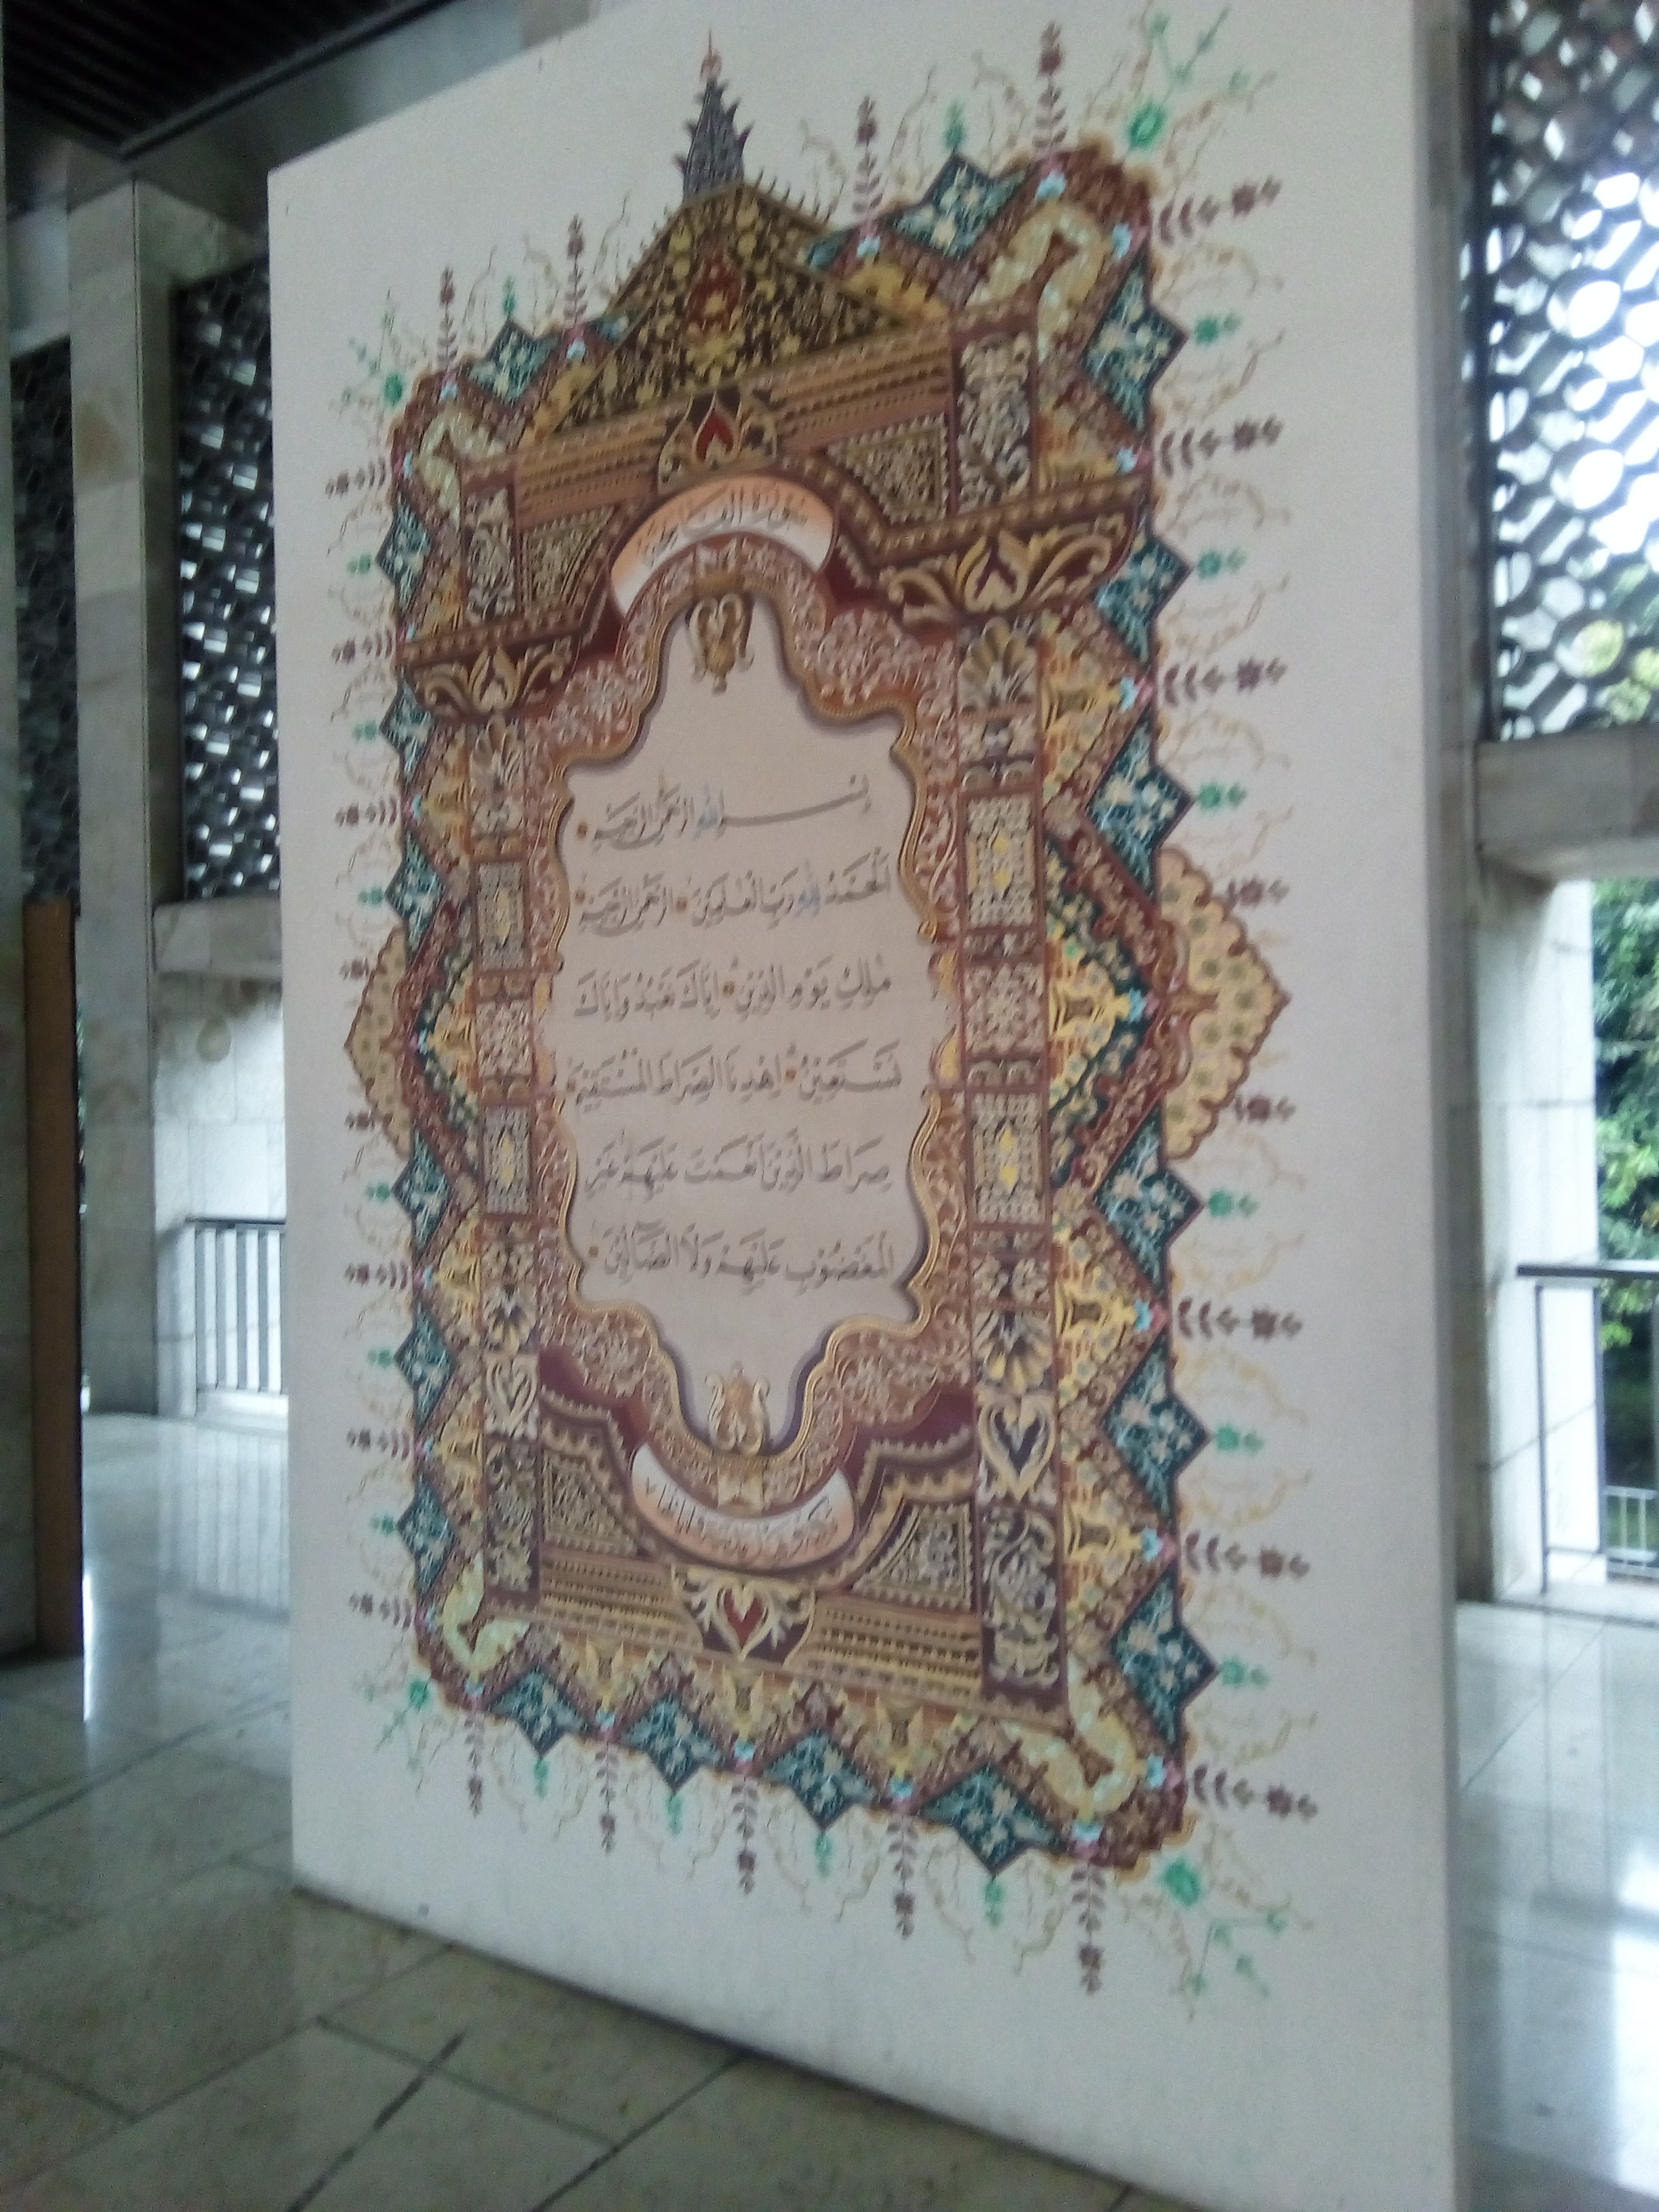 سورة الفاتحة
بِسْمِ اللهِ الرَّحْمٰنِ الرَّحِيْمِ
الْحَمْدُ لِلّٰهِ رَبِّ الْعٰلَمِيْنَ الرَّحْمٰنِ الرَّحِيْمِ
مٰلِكِ يَوْمِ الدِّيْنِ اِيَّاكَ نَعْبُدُ وَاِيَّاكَ
نَسْتَعِيْنُ اِهْدِنَا الصِّرَاطَ الْمُسْتَقِيْمَ
صِرَاطَ الَّذِيْنَ اَنْعَمْتَ عَلَيْهِمْ غَيْرِ
الْمَغْضُوْبِ عَلَيْهِمْ وَلَا الضَّآلِّيْنَ